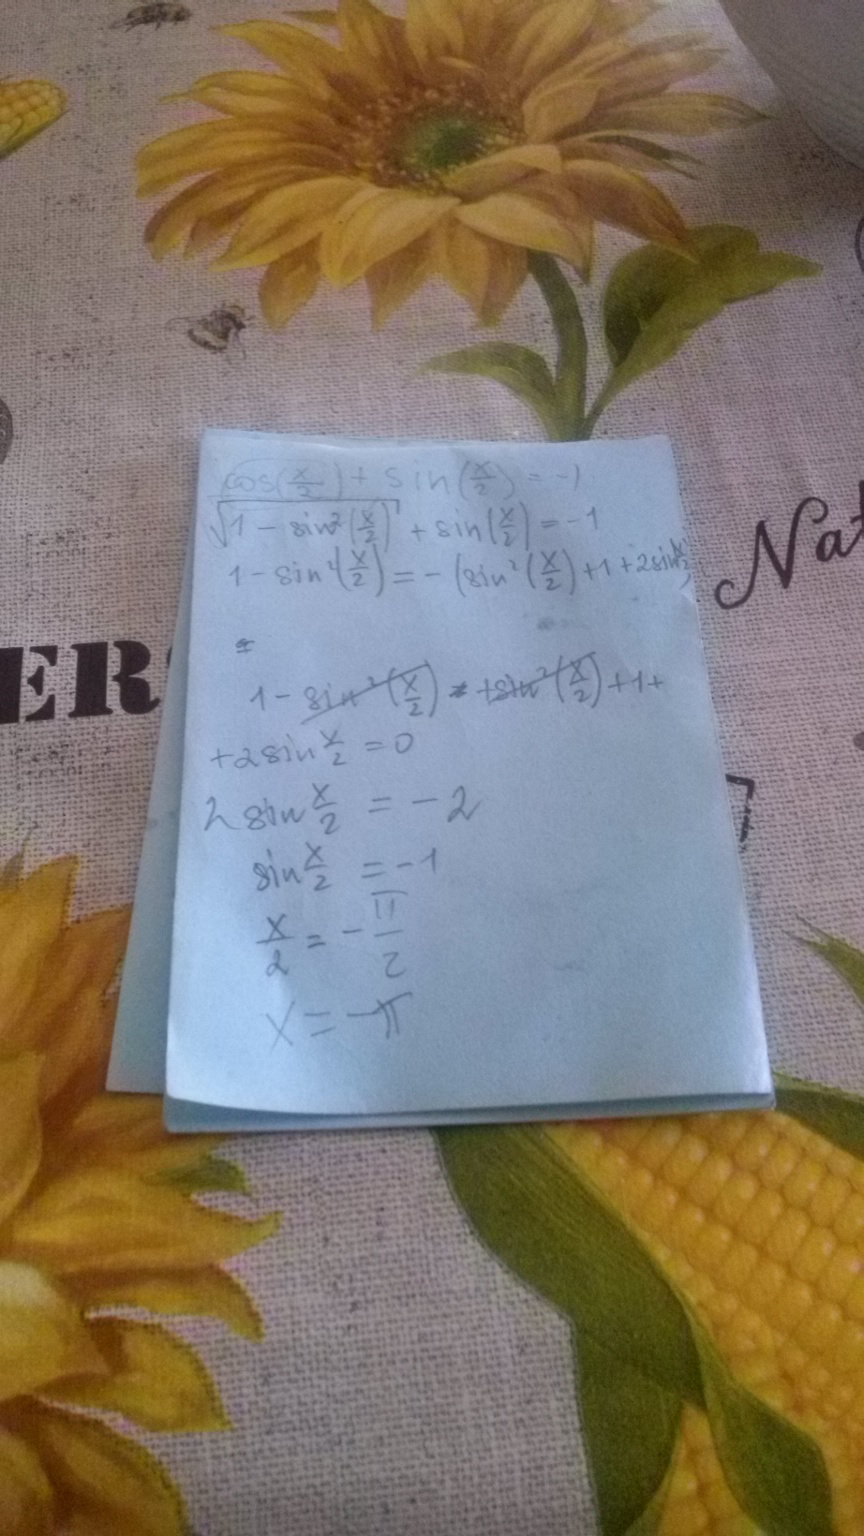 cos(x/2) + sin(x/2) = -1
√(1 - sin²(x/2)) + sin(x/2) = -1
1 - sin²(x/2) = -(sin²(x/2) + 1 + 2sin x/2)
1 - sin²(x/2) + sin²(x/2) + 1 +
+ 2 sin x/2 = 0
2 sin x/2 = -2
sin x/2 = -1
x/2 = - π/2
x = -π
Nat
ER